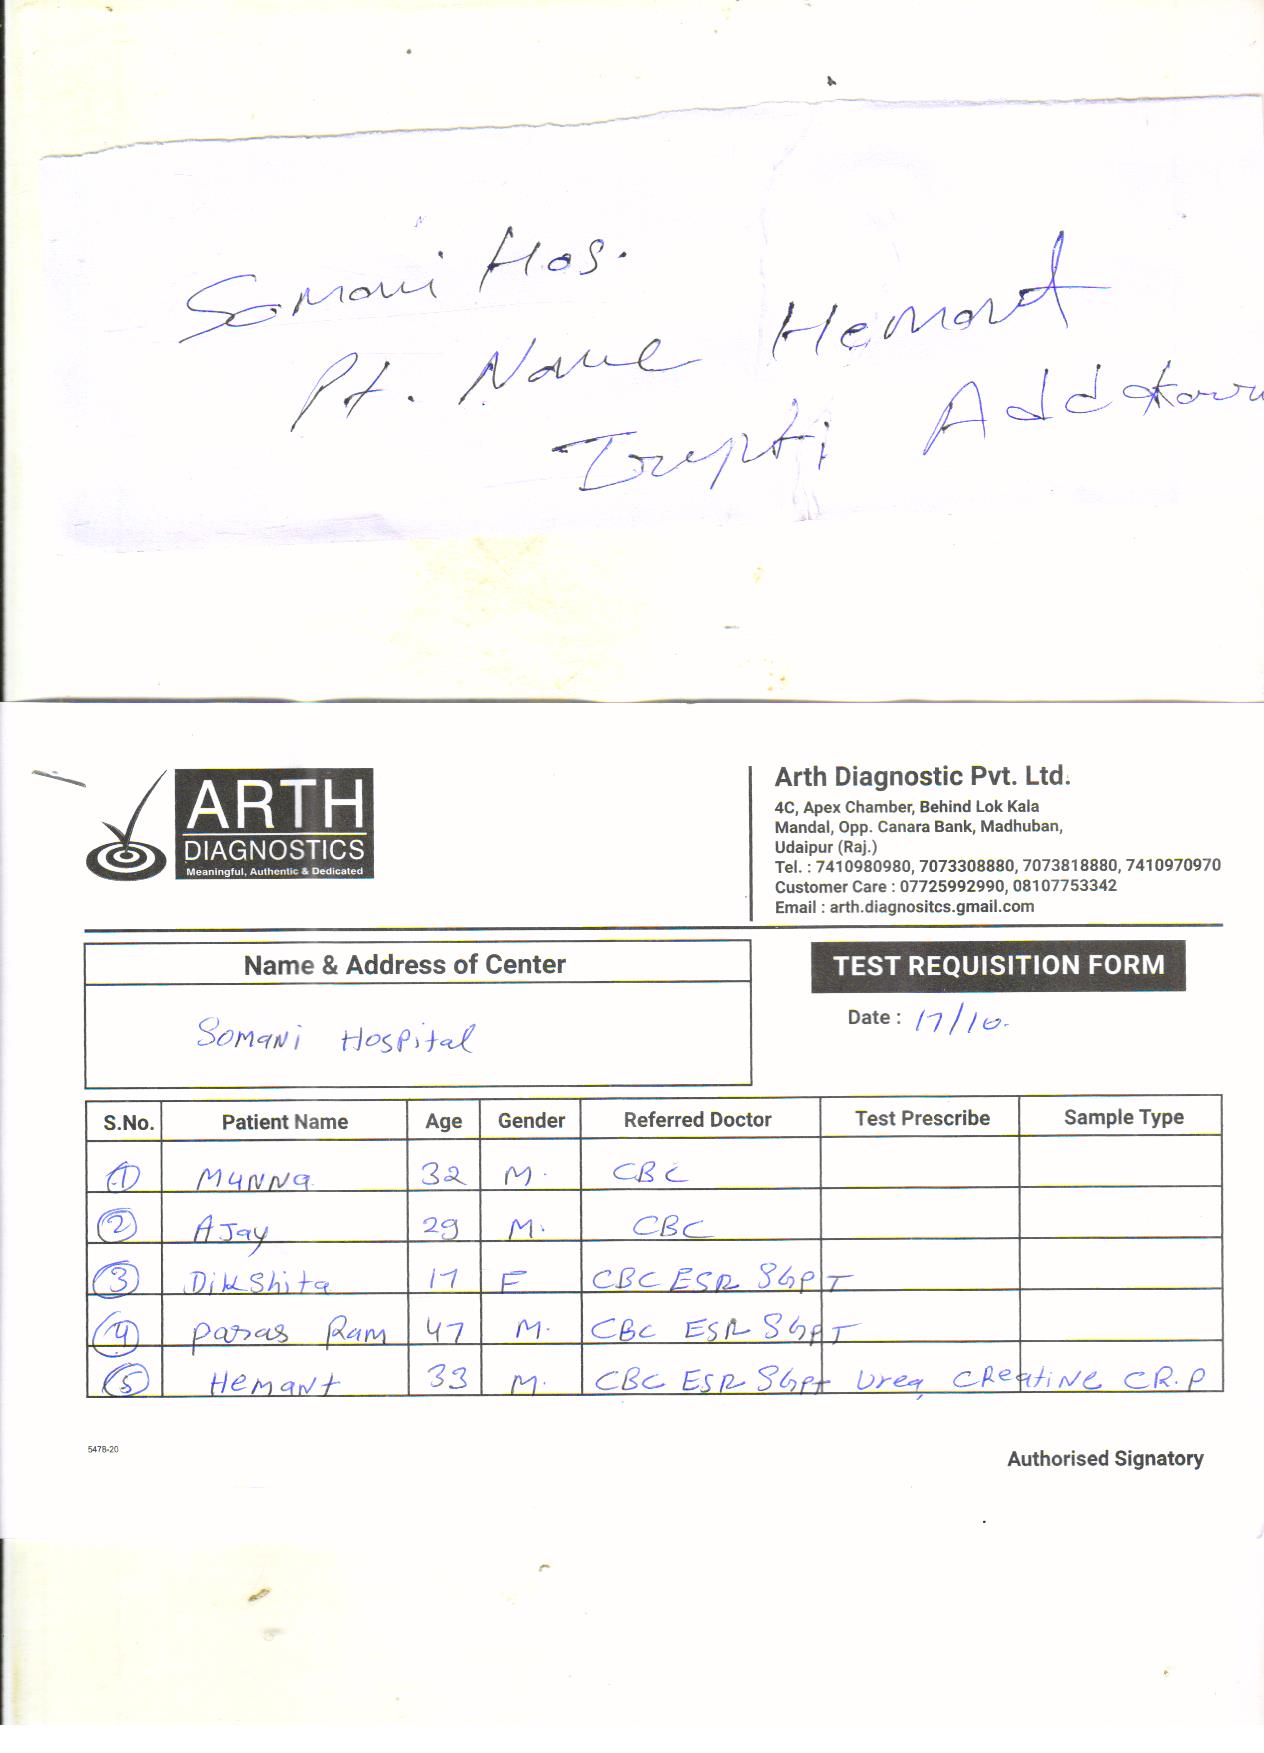 Somani Hos.
Pt. Name Hemant
Add
ARTH
DIAGNOSTICS
Meaningful, Authentic & Dedicated
Arth Diagnostic Pvt. Ltd.
4C, Apex Chamber, Behind Lok Kala
Mandal, Opp. Canara Bank, Madhuban,
Udaipur (Raj.)
Tel. : 7410980980, 7073308880, 7073818880, 7410970970
Customer Care : 07725992990, 08107753342
Email : arth.diagnositcs.gmail.com
Name & Address of Center
Somani Hospital
TEST REQUISITION FORM
Date : 17/10.
S.No. Patient Name Age Gender Referred Doctor Test Prescribe Sample Type
1 Munna 32 M. CBC
2 Ajay 29 M. CBC
3 Dikshita 17 F CBC ESR SGPT
4 Paras Ram 47 M. CBC ESR SGPT
5 Hemant 33 M. CBC ESR SGPT Urea Creatine CR.P
5478-20
Authorised Signatory